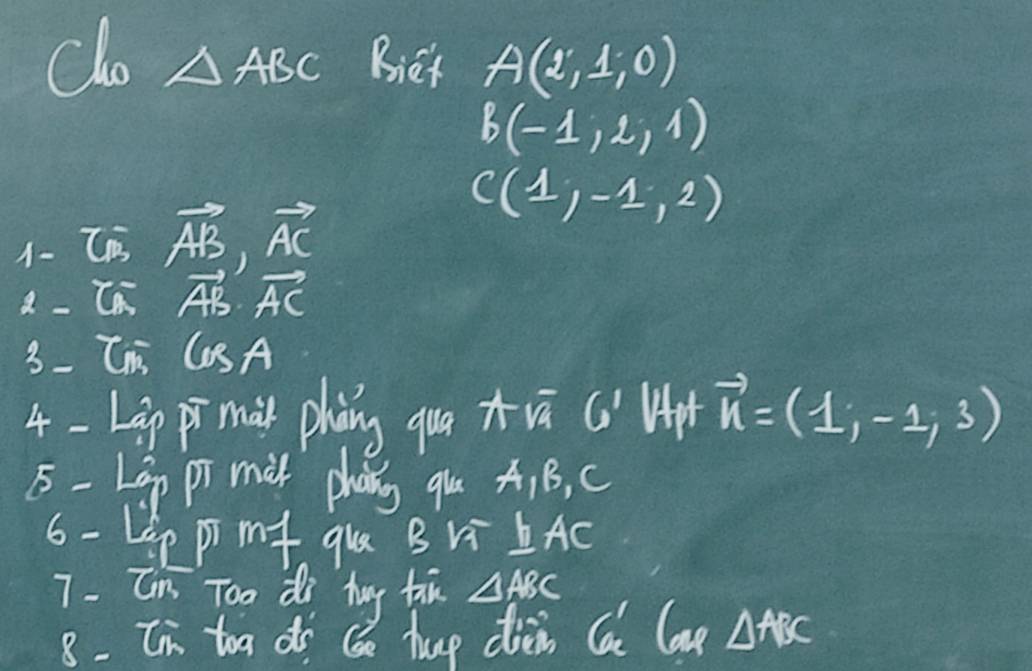 Cho △ABC Biết A(2;1;0)
B(-1;2;1)
C(1;-1;2)
1- Tìm \overrightarrow{AB}, \overrightarrow{AC}
2- Tìm \overrightarrow{AB}.\overrightarrow{AC}
3- Tìm Cos A
4- Lập pt mặt phẳng qua A và có Vtpt \vec{n}=(1;-1;3)
5- Lập pt mặt phẳng qua A,B,C
6- Lập pt mf qua B và ⊥ AC
7- Tìm Toạ độ trọng tâm △ABC
8- Tìm toạ độ các trung điểm các cạnh △ABC